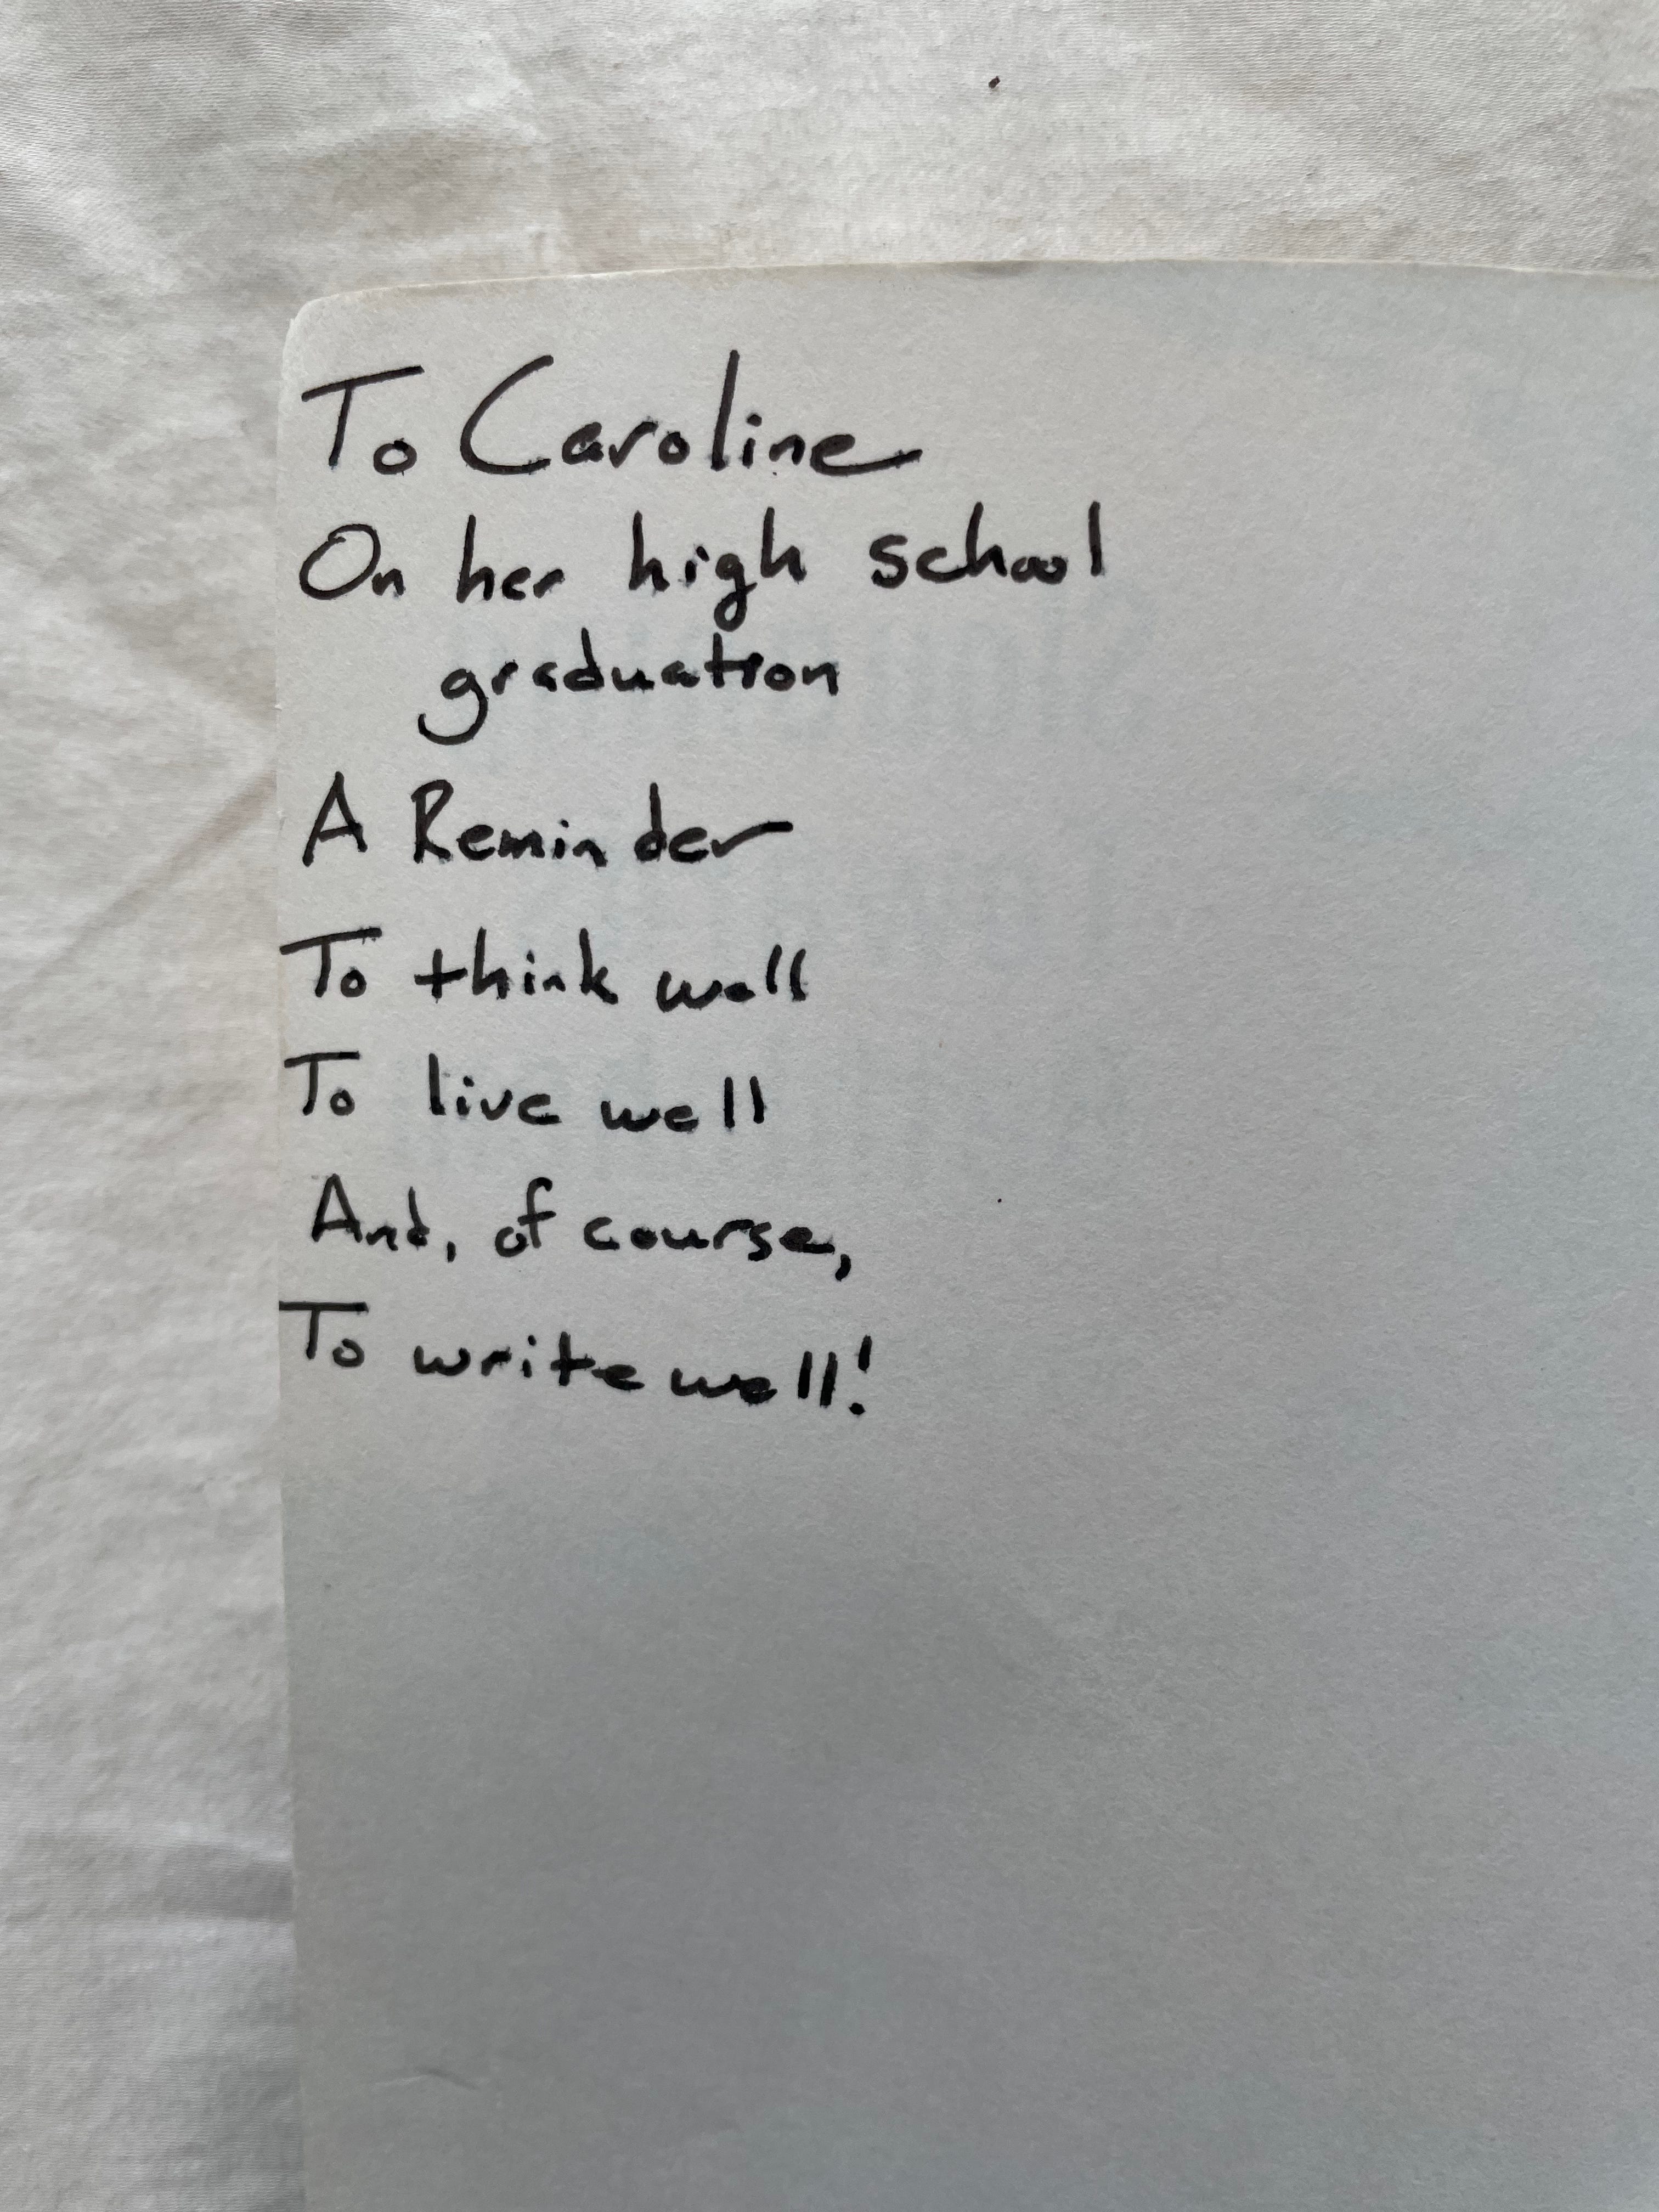 To Caroline
On her high school
graduation
A Reminder
To think well
To live well
And, of course,
To write well!